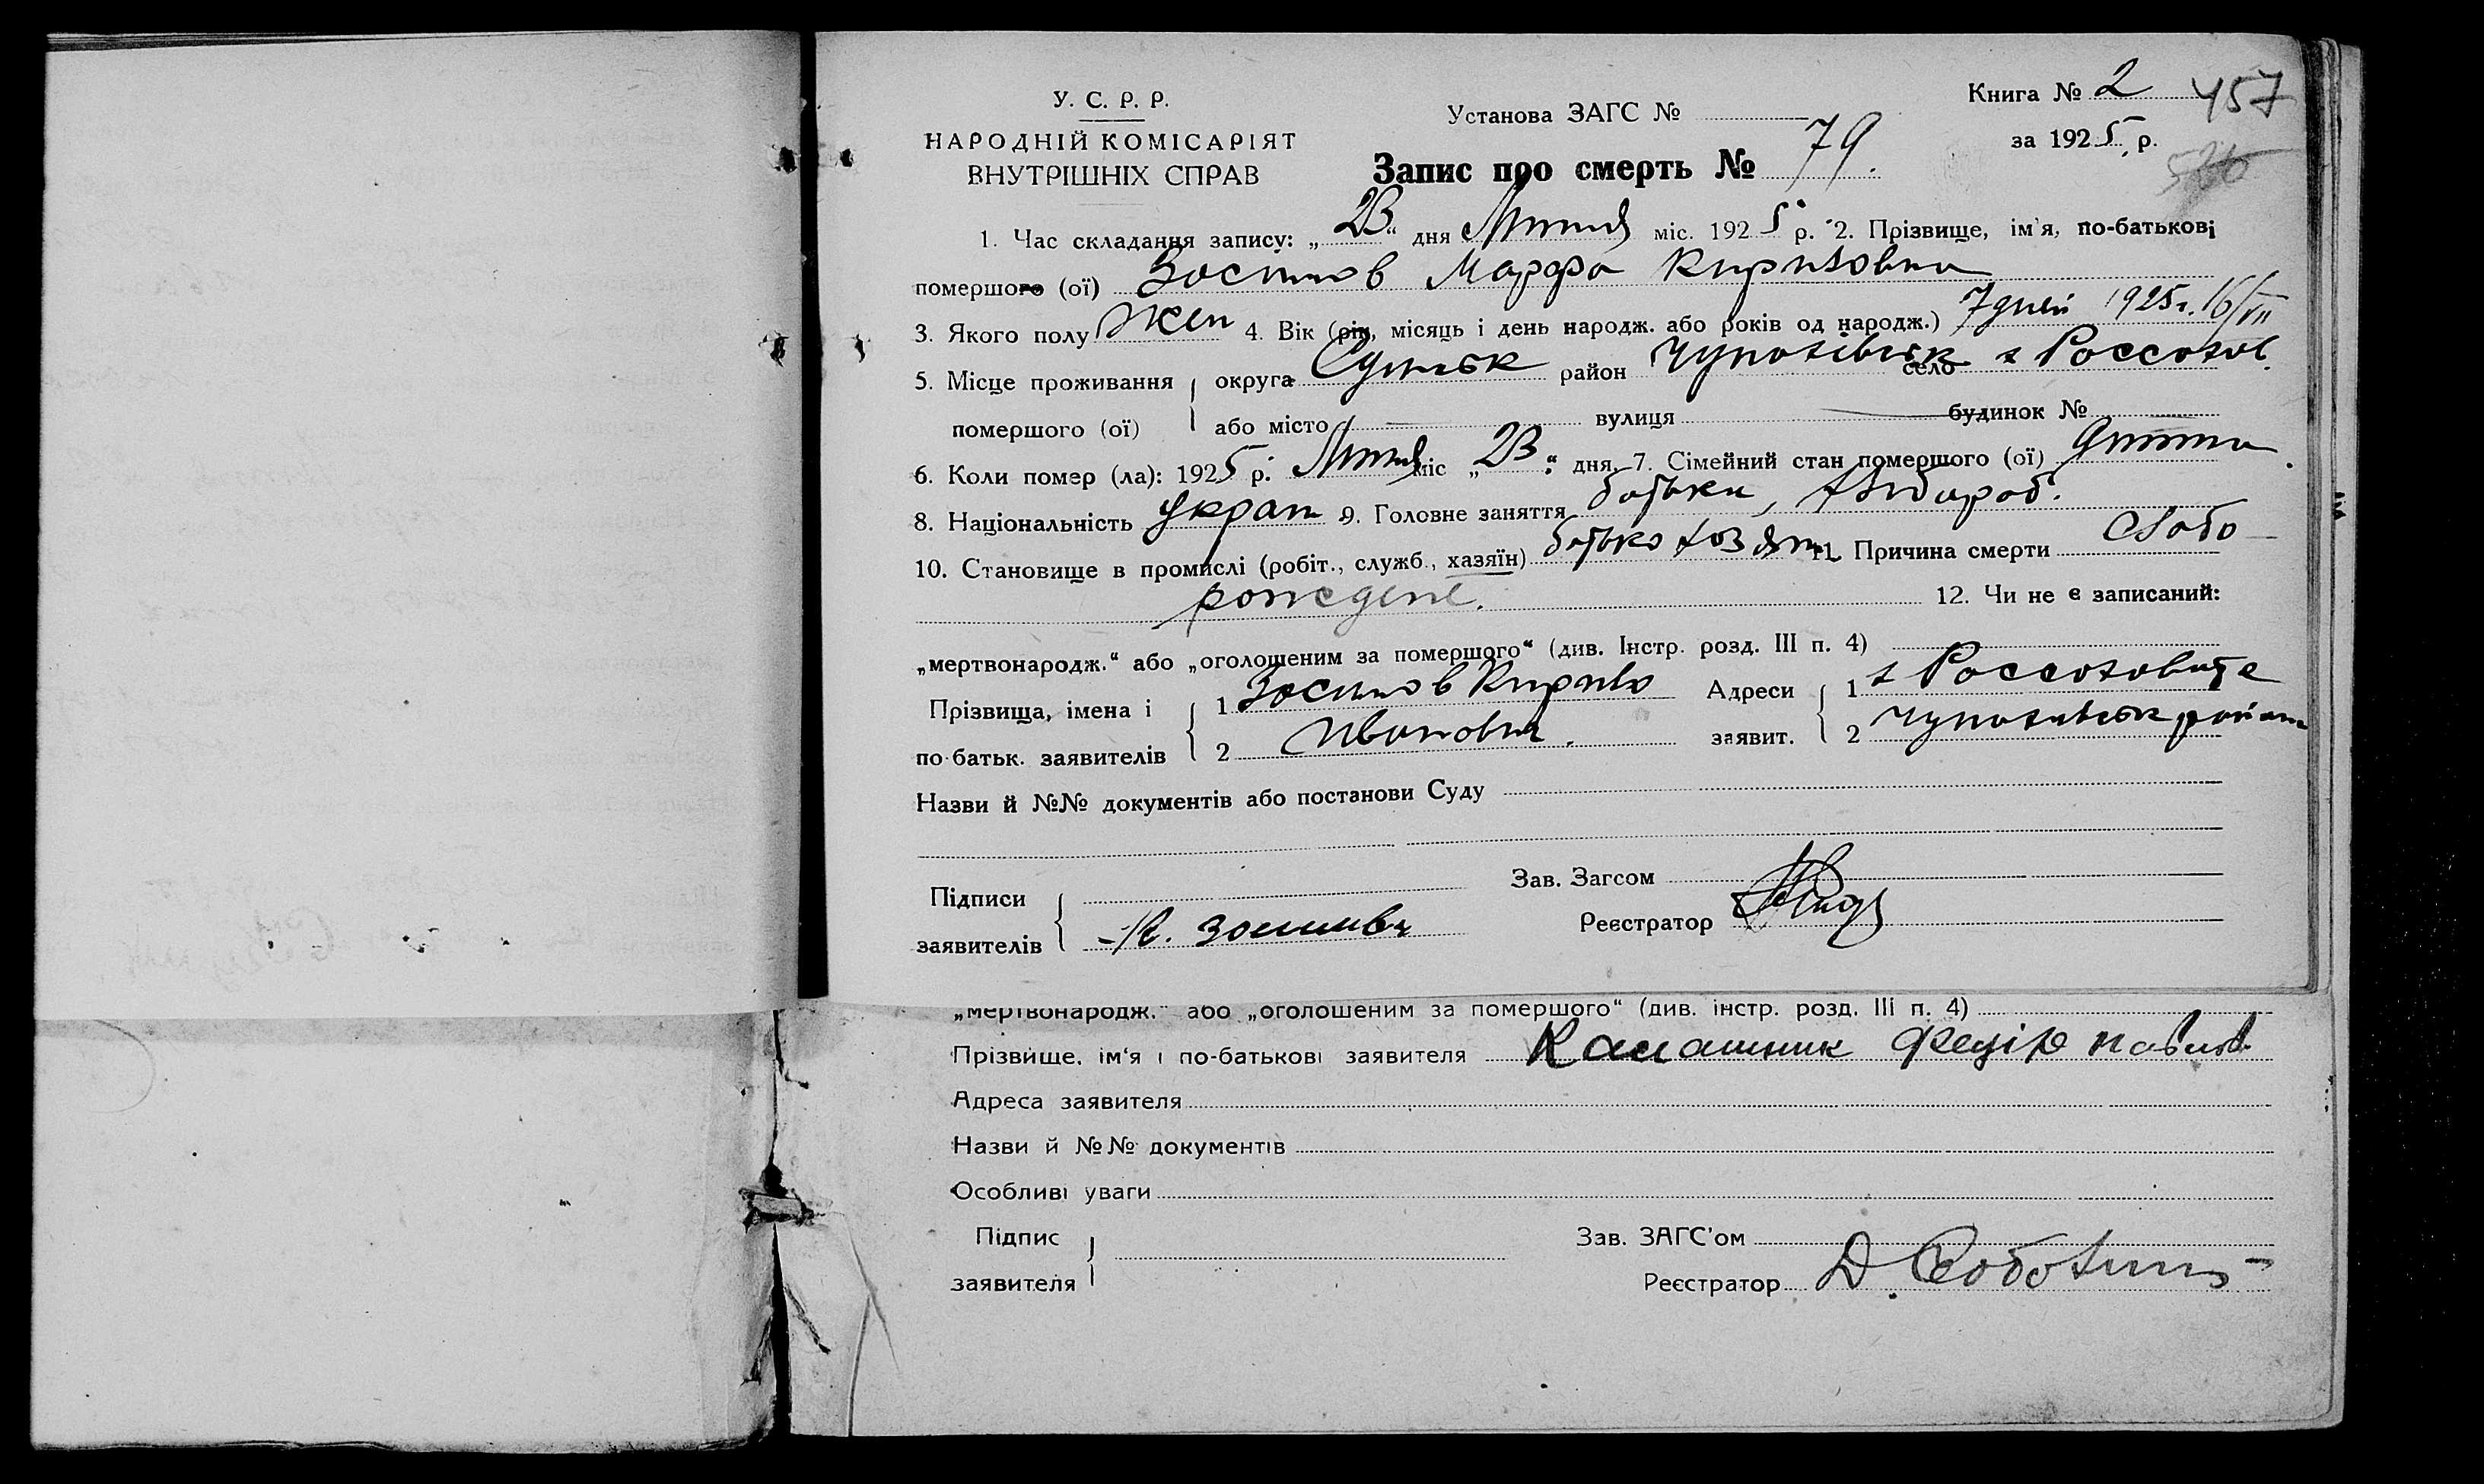 У. С. Р. Р.
НАРОДНІЙ КОМІСАРІЯТ
ВНУТРІШНІХ СПРАВ
Установа ЗАГС №
Книга № 2 457
за 1925 р.
Запис про смерть № 79.
1. Час складання запису: „23“ дня Липня міс. 1925 р. 2. Прізвище, ім'я, по-батькові
помершого (ої) Зосимов Марфа Кириловна
3. Якого полу Жен 4. Вік (рік, місяць і день народж. або років од народж.) 7 дней 1925 г. 16/VII
5. Місце проживання округа Сумськ район Чупахівськ село х Россохов.
помершого (ої) або місто вулиця будинок №
6. Коли помер (ла): 1925 р. Липня міс „23“ дня. 7. Сімейний стан помершого (ої) дитина.
8. Національність украт 9. Головне заняття батьки, хлібороб.
10. Становище в промислі (робіт., служб., хазяїн) батько хозяїн 11. Причина смерти слабо
рождене. 12. Чи не є записаний:
„мертвонародж.“ або „оголошеним за померщого“ (див. Інстр. розд. III п. 4)
Прізвища, імена і 1 Зосимов Кирило Адреси 1 х Россоховате
по-батьк. заявителів 2 Иванович. заявит. 2 Чупахивськ район
Назви й №№ документів або постанови Суду
Зав. Загсом
Підписи
заявителів К. Зосимовъ Реєстратор
„мертвонародж.“ або „оголошеним за помершого“ (див. інстр. розд. III п. 4)
Прізвище, ім'я і по-батькові заявителя Калашник Федір Павлов.
Адреса заявителя
Назви й №№ документів
Особливі уваги
Підпис Зав. ЗАГС'ом
заявителя Реєстратор Д.